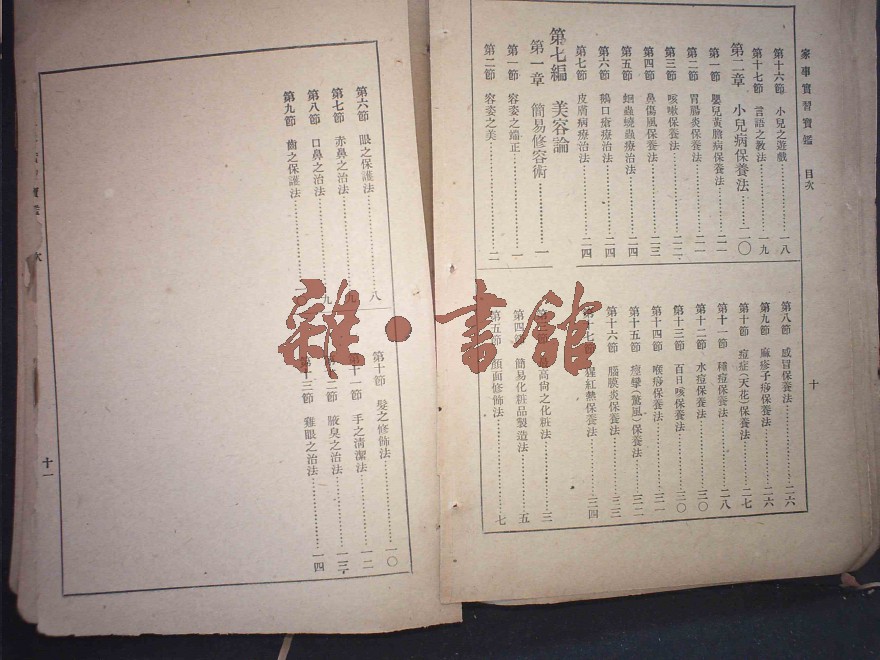 家事實習寶鑑 目次
十
第十六節 小兒之遊戲 一八
第十七節 言語之教法 一九
第二章 小兒病保養法 二〇
第一節 嬰兒黃膽病保養法 二一
第二節 胃腸炎保養法 二一
第三節 咳嗽保養法 二二
第四節 鼻傷風保養法 二三
第五節 蛔蟲蟯蟲療治法 二四
第六節 鵝口瘡療治法 二四
第七節 皮膚病療治法 二四
第七編 美容論
第一章 簡易修容術 一
第一節 容姿之端正 一
第二節 容姿之美 二
第八節 感冒保養法 二六
第九節 麻疹子疹保養法 二六
第十節 痘症(天花)保養法 二七
第十一節 種痘保養法 二八
第十二節 水痘保養法 三〇
第十三節 百日咳保養法 三〇
第十四節 喉痧保養法 三一
第十五節 痙攣(驚風)保養法 三二
第十六節 腦膜炎保養法 三三
十七 猩紅熱保養法 三四
高尚之化粧法 三
第四 簡易化粧品製造法 五
第五節 顏面修飾法 七
第六節 眼之保護法 八
第七節 赤鼻之治法 九
第八節 口鼻之治法 九
第九節 齒之保護法
第十節 髮之修飾法 一〇
十一節 手之清潔法 一二
二節 腋臭之治法 一三
十三節 雞眼之治法 一四
十一
雜·書館